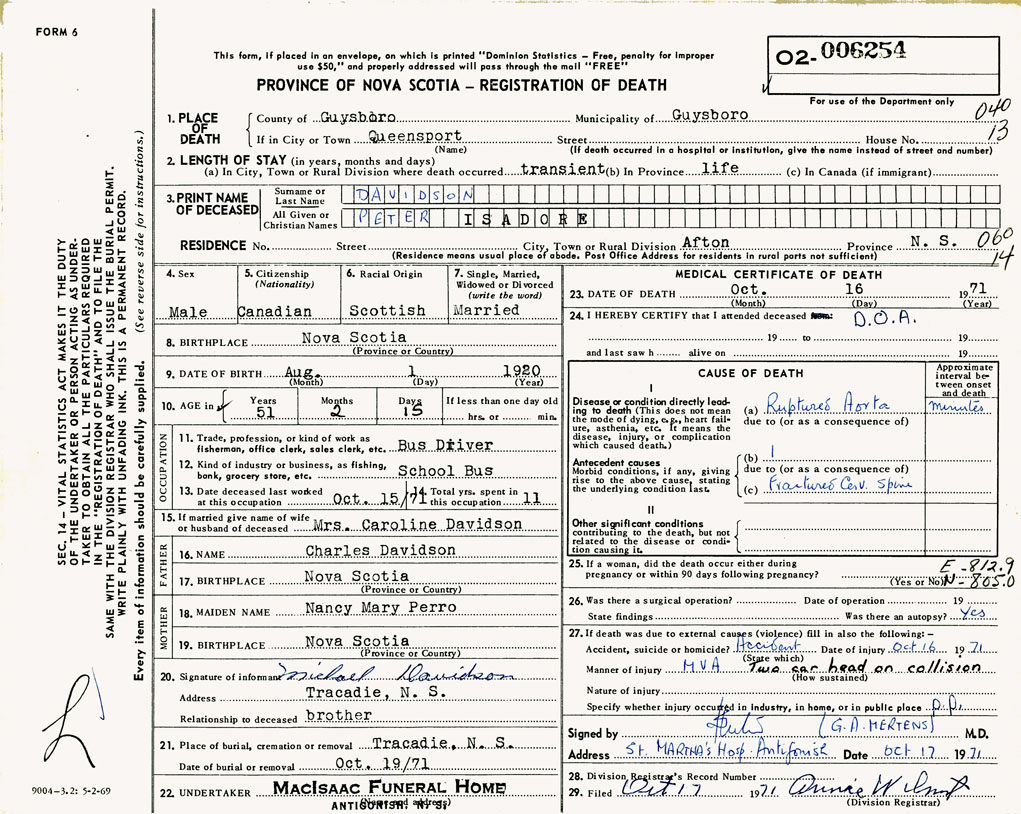 FORM 6
This form, if placed in an envelope, on which is printed "Dominion Statistics – Free, penalty for improper
use $50," and properly addressed will pass through the mail "FREE"
PROVINCE OF NOVA SCOTIA – REGISTRATION OF DEATH
02-006254
For use of the Department only
1. PLACE OF DEATH
County of Guysboro Municipality of Guysboro 040
If in City or Town Queensport Street House No. 13
(Name) (If death occurred in a hospital or institution, give the name instead of street and number)
2. LENGTH OF STAY (in years, months and days)
(a) In City, Town or Rural Division where death occurred transient (b) In Province life (c) In Canada (if immigrant)
3. PRINT NAME OF DECEASED
Surname or Last Name DAVIDSON
All Given or Christian Names PETER ISADORE
RESIDENCE No. Street City, Town or Rural Division Afton Province N. S. 060
(Residence means usual place of abode. Post Office Address for residents in rural ports not sufficient) 14
4. Sex
Male
5. Citizenship
(Nationality)
Canadian
6. Racial Origin
Scottish
7. Single, Married,
Widowed or Divorced
(write the word)
Married
8. BIRTHPLACE Nova Scotia
(Province or Country)
9. DATE OF BIRTH Aug. 1 1920
(Month) (Day) (Year)
10. AGE in
Years Months Days If less than one day old
51 2 15 hrs. or min.
OCCUPATION
11. Trade, profession, or kind of work as
fisherman, office clerk, sales clerk, etc. Bus Driver
12. Kind of industry or business, as fishing,
bank, grocery store, etc. School Bus
13. Date deceased last worked Total yrs. spent in
at this occupation Oct. 15/71 this occupation 11
15. If married give name of wife
or husband of deceased Mrs. Caroline Davidson
FATHER
16. NAME Charles Davidson
17. BIRTHPLACE Nova Scotia
(Province or Country)
MOTHER
18. MAIDEN NAME Nancy Mary Perro
19. BIRTHPLACE Nova Scotia
(Province or Country)
20. Signature of informant Michael Davidson
Address Tracadie, N. S.
Relationship to deceased brother
21. Place of burial, cremation or removal Tracadie, N. S.
Date of burial or removal Oct. 19/71
22. UNDERTAKER MacIsaac Funeral Home
(Name and address)
ANTIGONISH, N. S.
MEDICAL CERTIFICATE OF DEATH
23. DATE OF DEATH Oct. 16 1971
(Month) (Day) (Year)
24. I HEREBY CERTIFY that I attended deceased from: D.O.A.
19 to 19
and last saw h alive on 19
CAUSE OF DEATH
Approximate
interval be-
tween onset
and death
I
Disease or condition directly lead-
ing to death (This does not mean
the mode of dying, e.g., heart fail-
ure, asthenia, etc. It means the
disease, injury, or complication
which caused death.)
(a) Ruptured Aorta minutes
due to (or as a consequence of)
Antecedent causes
Morbid conditions, if any, giving
rise to the above cause, stating
the underlying condition last.
(b)
due to (or as a consequence of)
(c) Fractured Cerv. Spine
II
Other significant conditions
contributing to the death, but not
related to the disease or condi-
tion causing it.
25. If a woman, did the death occur either during E-812.9
pregnancy or within 90 days following pregnancy?
(Yes or No) N-805.0
26. Was there a surgical operation? Date of operation 19
State findings Was there an autopsy? Yes
27. If death was due to external causes (violence) fill in also the following: –
Accident, suicide or homicide? Accident Date of injury Oct 16 1971
(State which)
Manner of injury MVA Two car head on collision
(How sustained)
Nature of injury
Specify whether injury occurred in industry, in home, or in public place P.P.
Signed by (G. A. MERTENS) M.D.
Address St. MARTHA's Hosp. Antigonish Date Oct 17 1971
28. Division Registrar's Record Number
29. Filed Oct 17 1971 Annie
(Division Registrar)
SEC. 14 – VITAL STATISTICS ACT MAKES IT THE DUTY
OF THE UNDERTAKER OR PERSON ACTING AS UNDER-
TAKER TO OBTAIN ALL THE PARTICULARS REQUIRED
IN THE "REGISTRATION OF DEATH" AND TO FILE THE
SAME WITH THE DIVISION REGISTRAR WHO SHALL ISSUE THE BURIAL PERMIT.
WRITE PLAINLY WITH UNFADING INK. THIS IS A PERMANENT RECORD.
Every item of information should be carefully supplied. (See reverse side for instructions.)
9004-3.2: 5-2-69